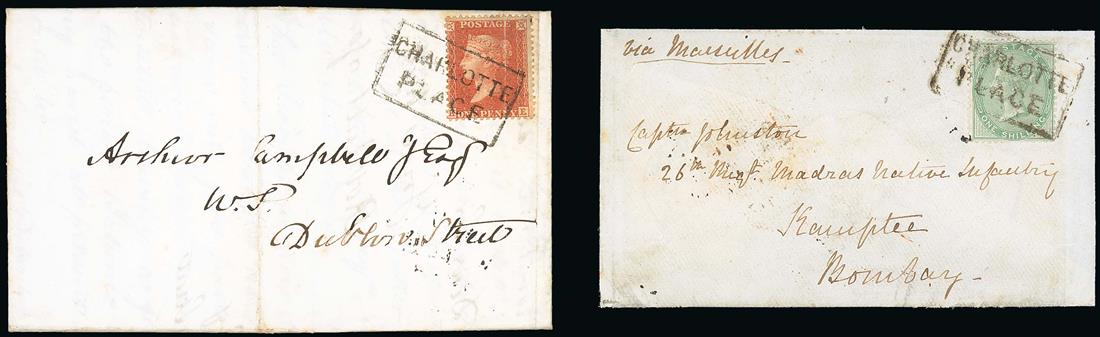 POSTAGE
ONE PENNY
CHARLOTTE
PLACE
Archer Campbell Esq
W.S.
Dublin Street
via Marseilles
POSTAGE
ONE SHILLING
CHARLOTTE
PLACE
Captn Johnston
26th Regt Madras Native Infantry
Kamptee
Bombay